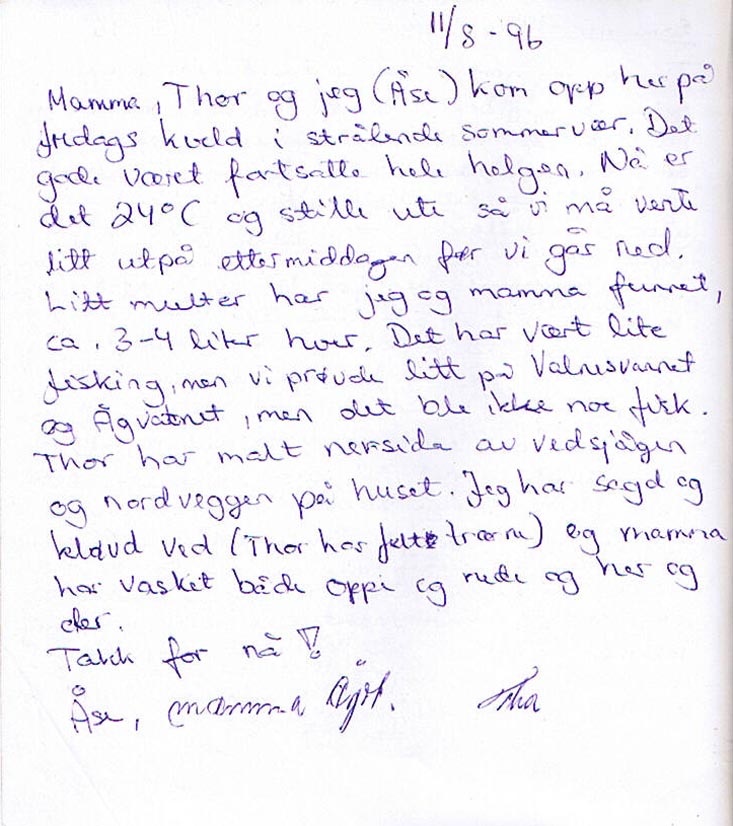 11/8 - 96
Mamma, Thor og jeg (Åse) kom opp her på
fredags kveld i strålende sommervær. Det
gode været fortsatte hele helgen. Nå er
det 24°C og stille ute så vi må vente
litt utpå ettermiddagen før vi går ned.
Litt multer har jeg og mamma funnet,
ca. 3-4 liter hver. Det har vært lite
fisking, men vi prøvde litt på Valnesvannet
og Ågvatnet, men det ble ikke noe fisk.
Thor har malt nersida av vedsjågen
og nordveggen på huset. Jeg har sagd og
kløvd ved (Thor har felt trærne) og mamma
har vasket både oppi og nede og her og
der.
Takk for nå!
Åse, mamma